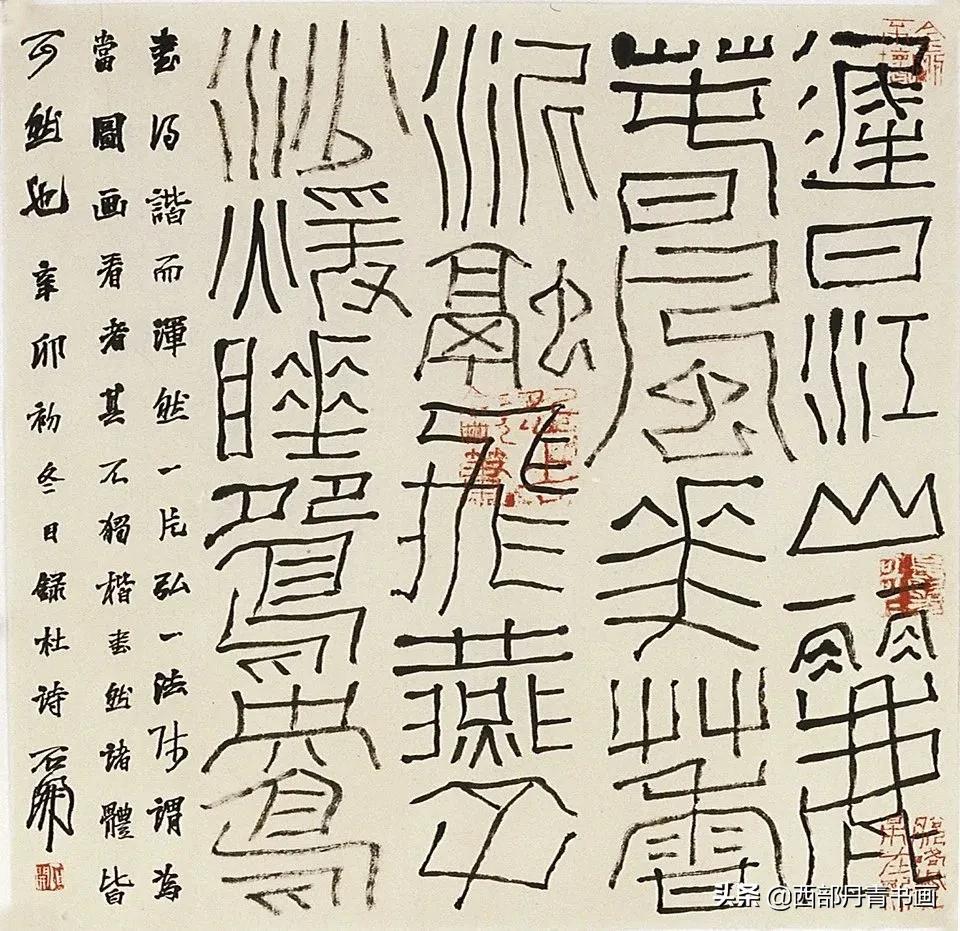 遲日江山麗
春風花艸香
泥融飛燕子
沙暖睡鴛鴦
書得諧而渾然一片弘一法師謂為
當圖画看者其不獨楷書然諸體皆
可然也辛卯初冬日錄杜詩石開
头条 @西部丹青书画